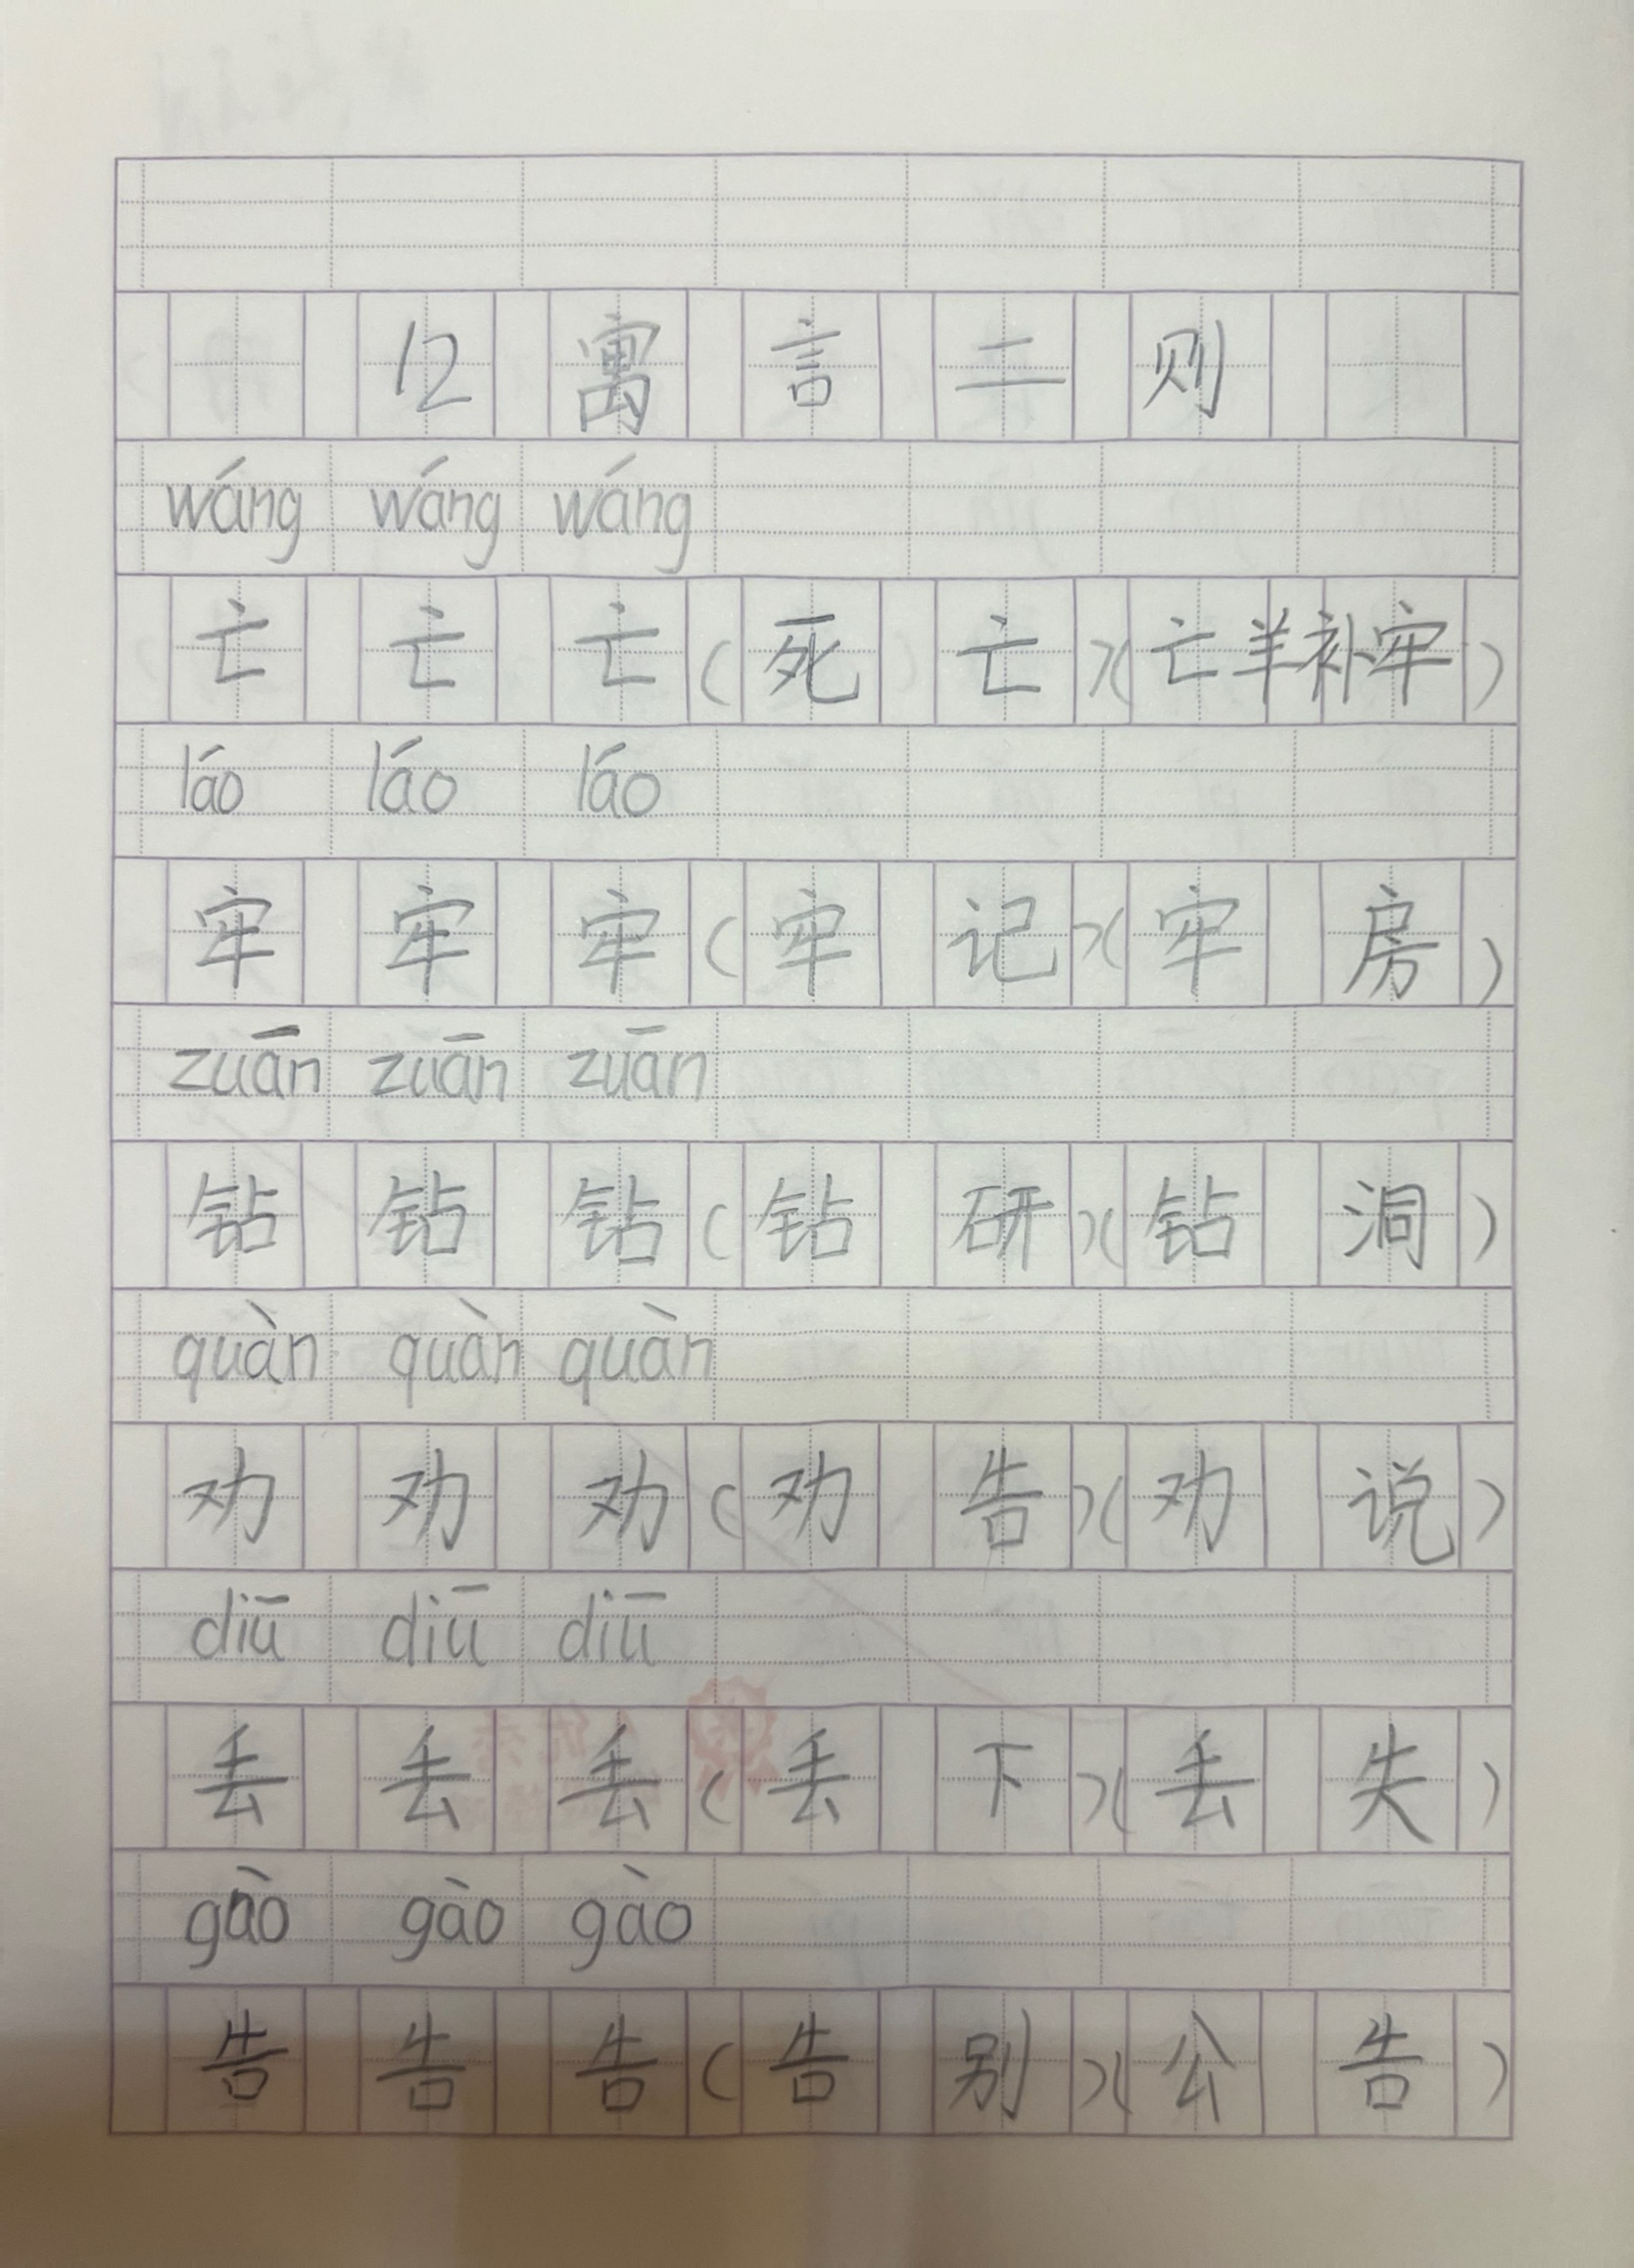 12 寓言二则
wáng wáng wáng
亡 亡 亡 (死亡)(亡羊补牢)
láo láo láo
牢 牢 牢 (牢记)(牢房)
zuān zuān zuān
钻 钻 钻 (钻研)(钻洞)
quàn quàn quàn
劝 劝 劝 (劝告)(劝说)
diū diū diū
丢 丢 丢 (丢下)(丢失)
gào gào gào
告 告 告 (告别)(公告)